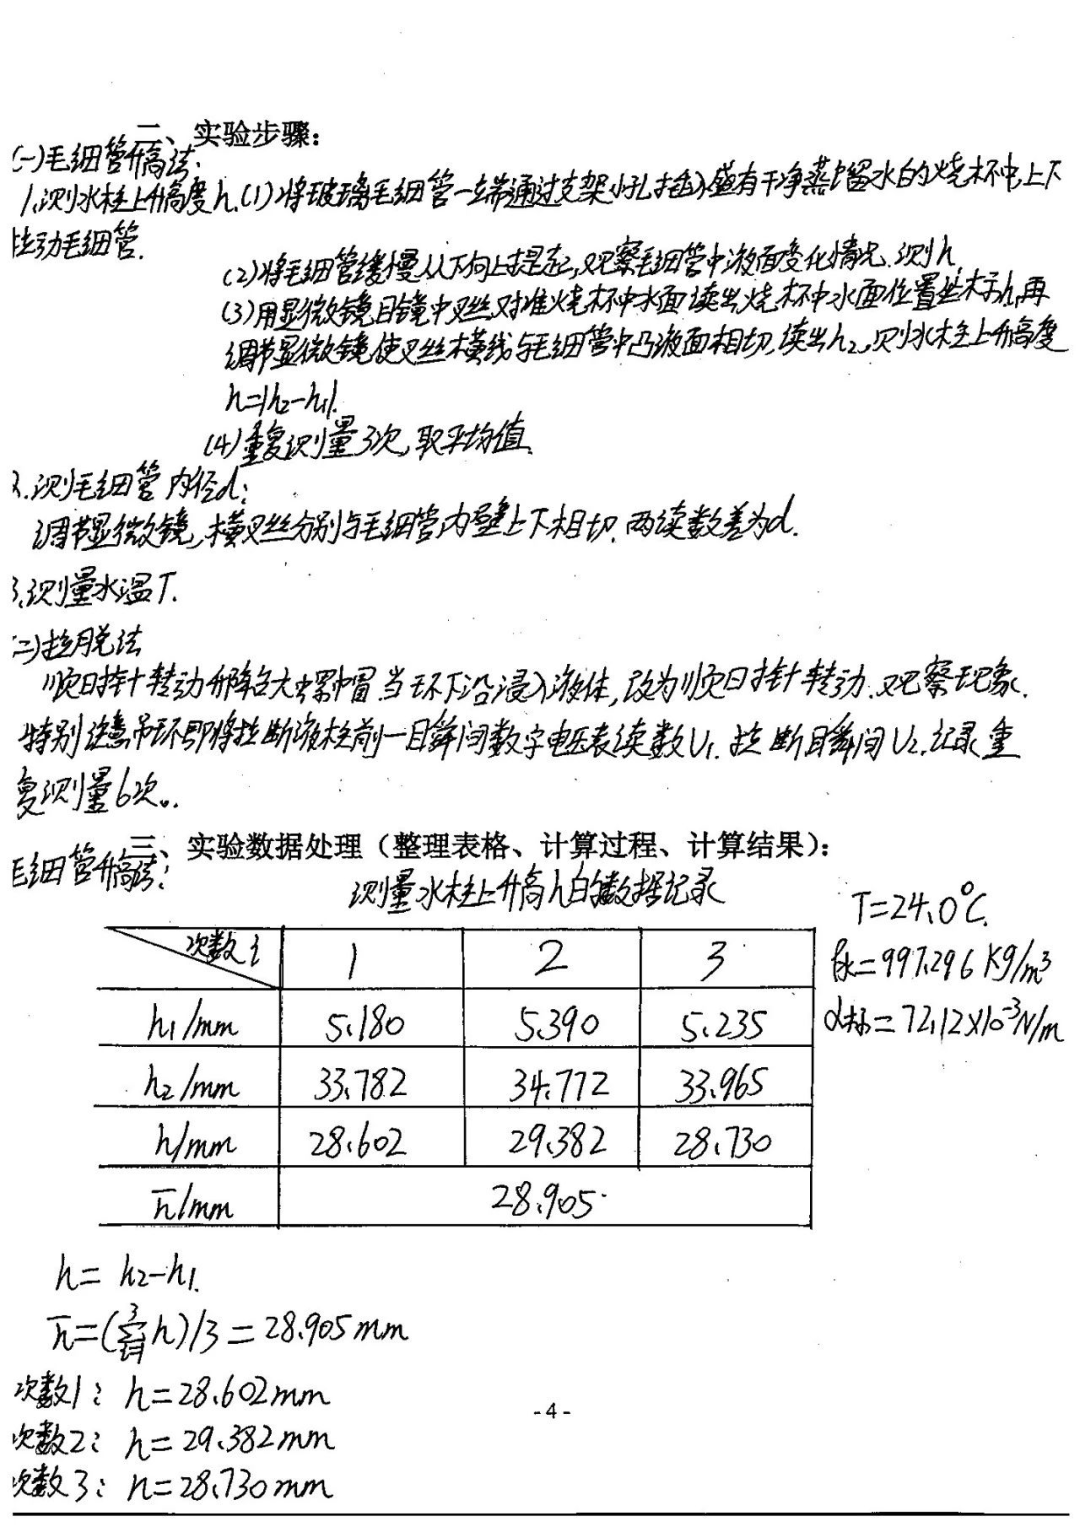 二、实验步骤:
(一)毛细管升高法:
1.测水柱上升高度h.(1)将玻璃毛细管一端通过支架小孔插入盛有干净蒸馏水的烧杯中,上下
拉动毛细管.
(2)将毛细管缓慢从下向上提起,观察毛细管中液面变化情况.测h
(3)用显微镜目镜中叉丝对准烧杯中水面读出烧杯中水面位置坐标h₁,再
调节显微镜使叉丝横线与毛细管中凸液面相切,读出h₂,则水柱上升高度
h=|h₂-h₁|.
(4)重复测量3次,取平均值.
2.测毛细管内径d:
调节显微镜,横叉丝分别与毛细管内壁上下相切.两读数差为d.
3.测量水温T.
(二)拉脱法
顺时针转动升降台大螺帽当环下沿浸入液体,改为顺时针转动.观察现象.
特别注意吊环即将拉断液柱前一瞬间数字电压表读数U₁.拉断瞬间U₂.记录重
复测量6次.
三、实验数据处理(整理表格、计算过程、计算结果):
毛细管升高法:
测量水柱上升高h的数据记录
T=24.0°C.
次数i 1 2 3
ρ水=997.296 Kg/m³
h₁/mm 5.180 5.390 5.235
α标=72.12×10⁻³N/m
h₂/mm 33.782 34.772 33.965
h/mm 28.602 29.382 28.730
h̄/mm 28.905
h=h₂-h₁.
h̄=(∑³ᵢ₌₁h)/3=28.905mm
次数1: h=28.602mm
- 4 -
次数2: h=29.382mm
次数3: h=28.730mm